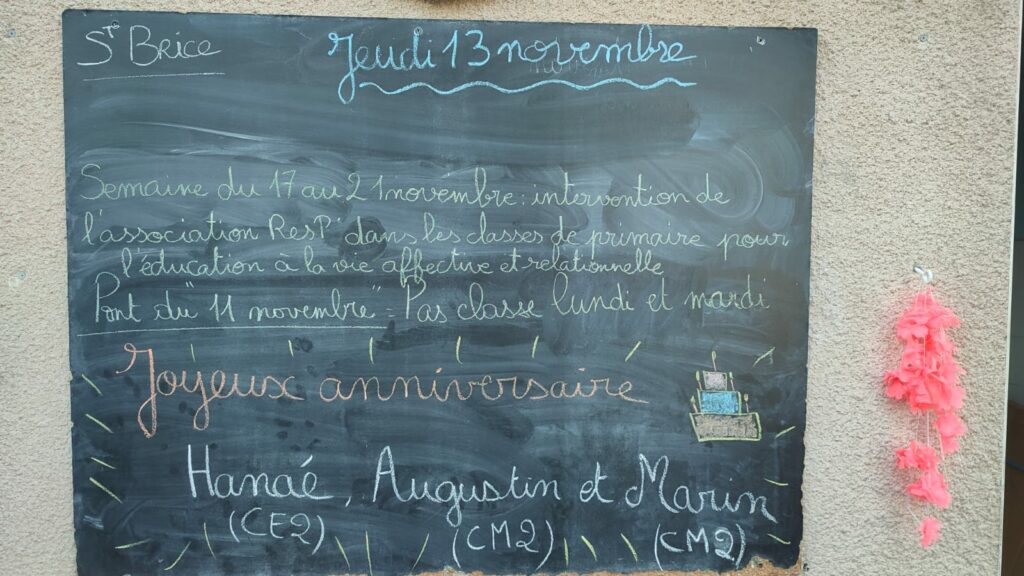 St Brice
Jeudi 13 novembre
Semaine du 17 au 21 novembre : intervention de
l'association ResP' dans les classes de primaire pour
l'éducation à la vie affective et relationnelle
Pont du "11 novembre" = Pas classe lundi et mardi
Joyeux anniversaire
Hanaé, Augustin et Marin
(CE2) (CM2) (CM2)